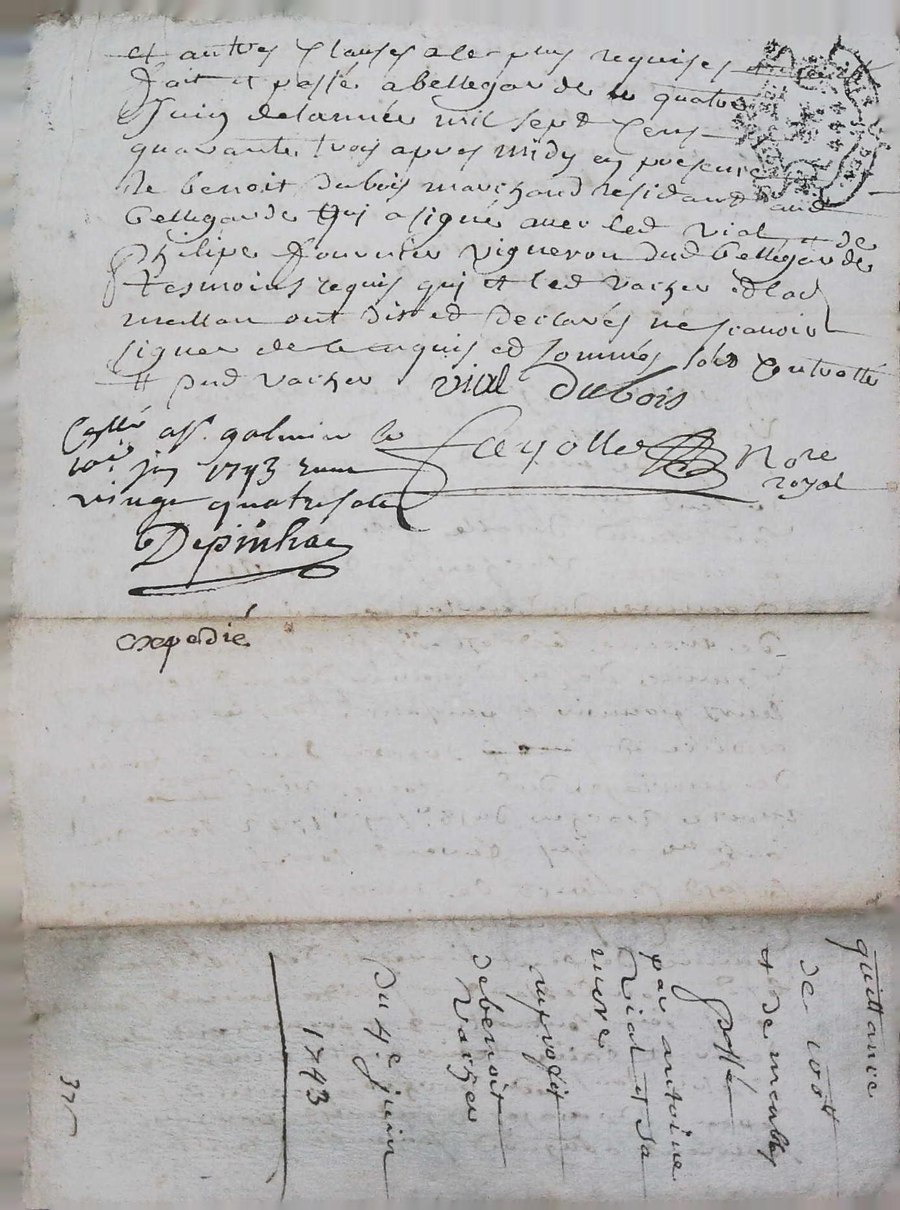 et autres Clauses a le plus requises
fait et passé a bellegarde le quatre
Juin de lannée mil sept Cens
quarante trois apres midy en presence
de benoit dubois marchand residant aud
bellegarde qui a signé avec led vial et de
philipe fournier vigneron dud bellegarde
tesmoins requis qui et led vacher et lad
ont dit et declarés ne scavoir
signer de ce enquis et sommés
dud vacher vial dubois
galmier le
juin 1743
vingt quatre sols
fayolle Nore
royal
Depinhac
expedié
quittance
de
et de meubles
passé
par antoine
vial et sa
mere
au profit
de benoit
vacher
Du 4e juin
1743